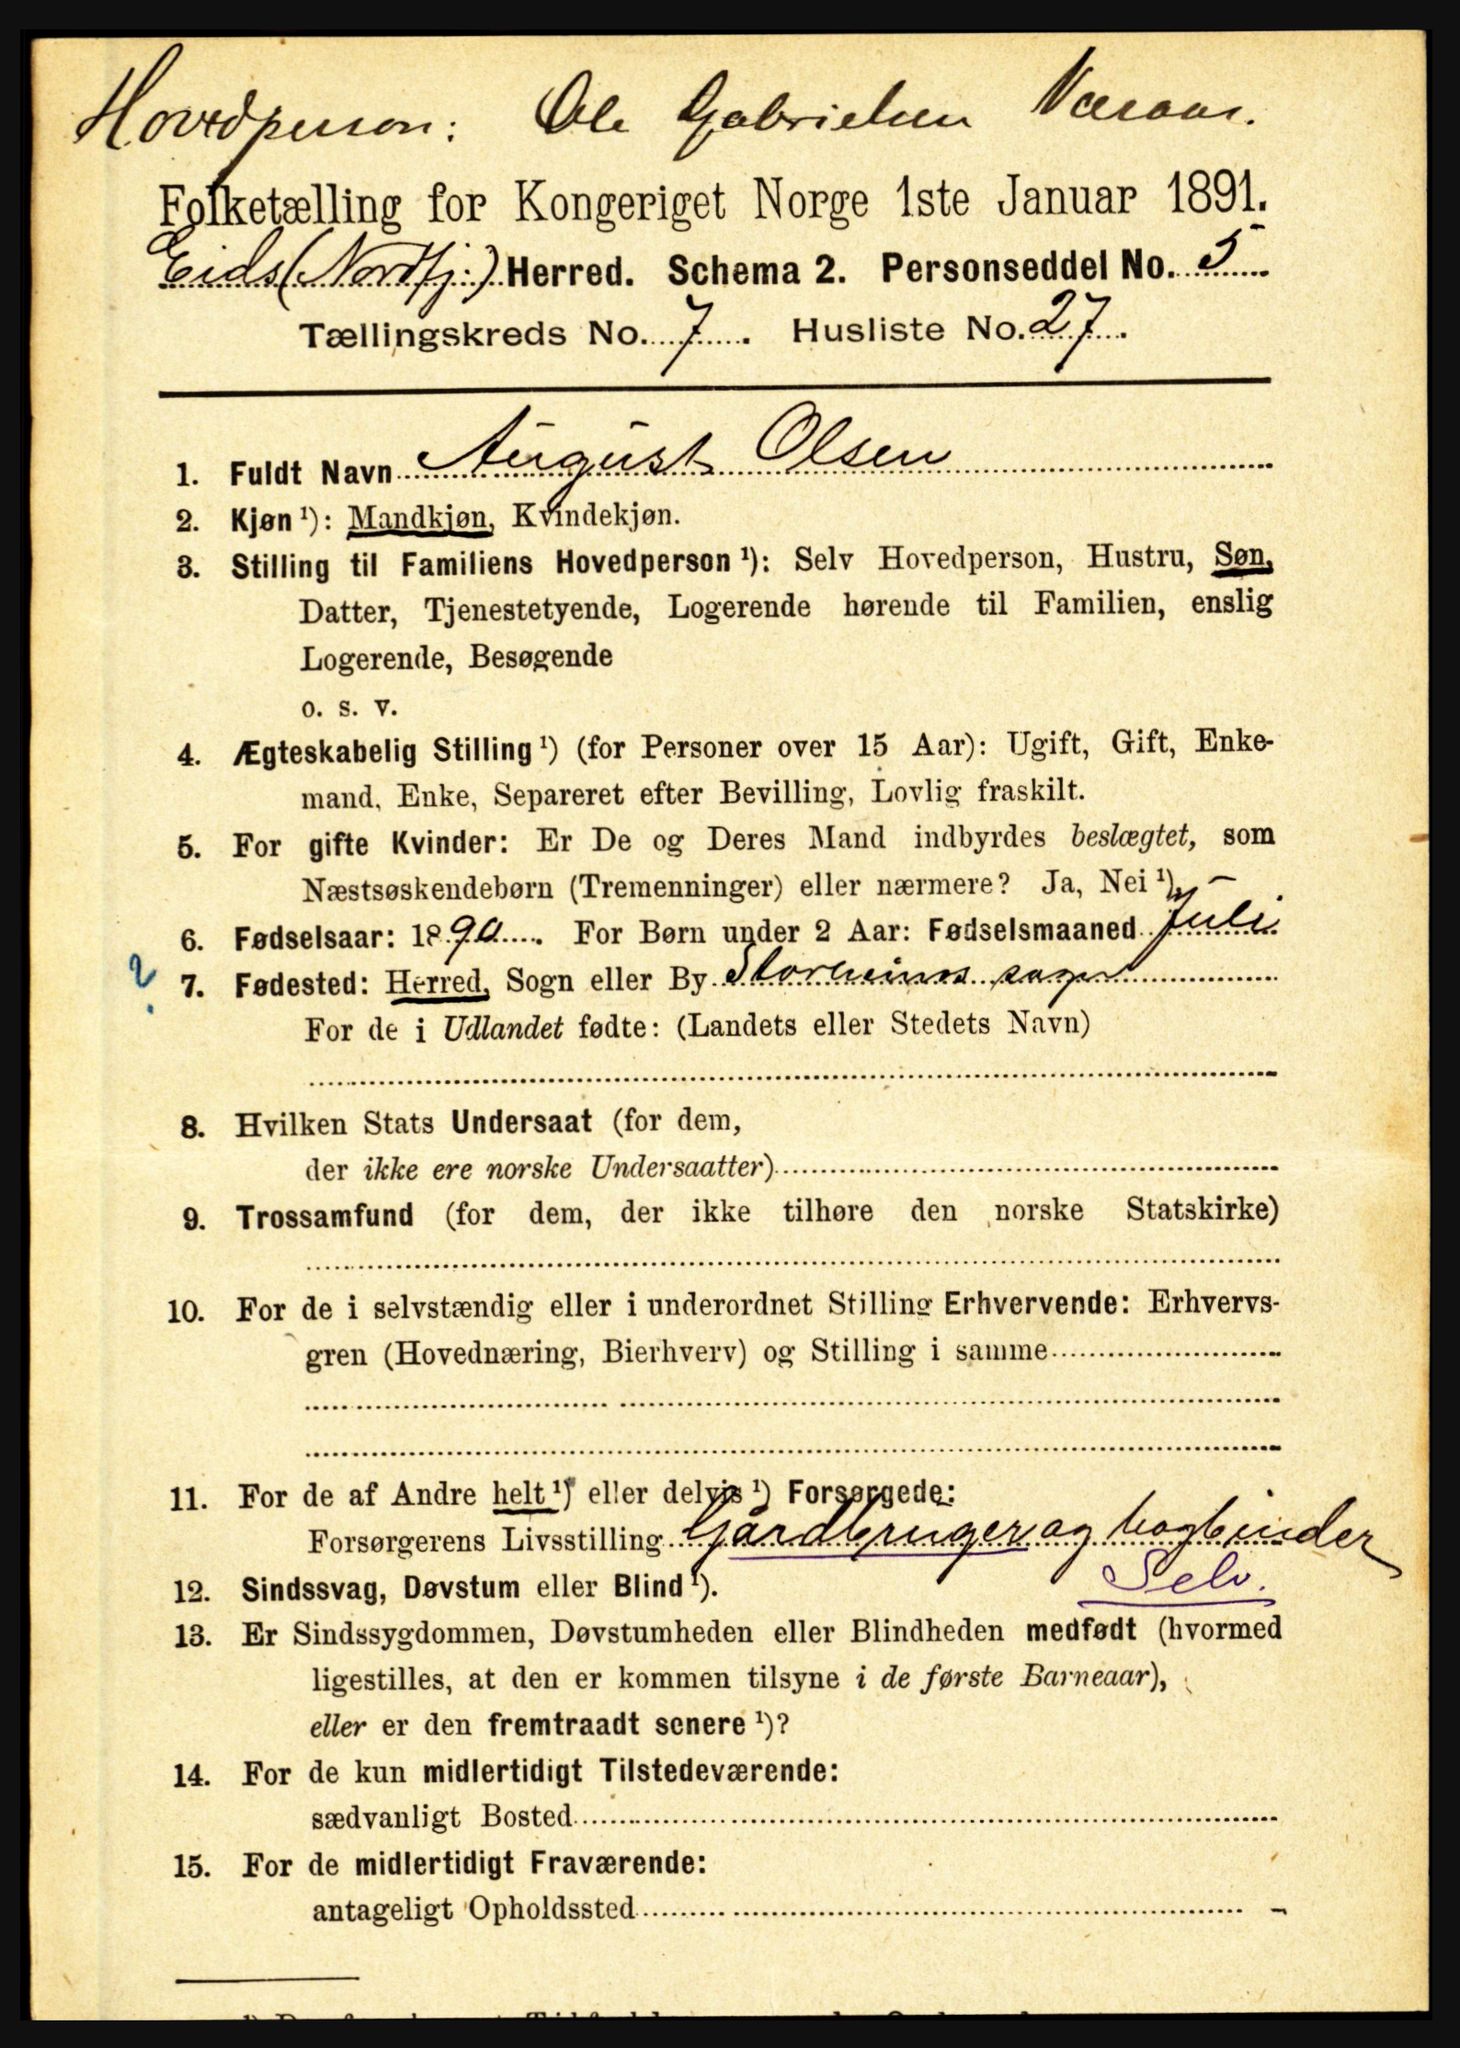 Hovedperson: Ole Gabrielsen
Folketælling for Kongeriget Norge 1ste Januar 1891.
Eids (Nordfj:) Herred. Schema 2. Personseddel No. 5
Tællingskreds No. 7. Husliste No. 27.
1. Fuldt Navn August Olsen
2. Kjøn ¹): Mandkjøn, Kvindekjøn.
3. Stilling til Familiens Hovedperson ¹): Selv Hovedperson, Hustru, Søn,
Datter, Tjenestetyende, Logerende hørende til Familien, enslig
Logerende, Besøgende
o. s. v.
4. Ægteskabelig Stilling ¹) (for Personer over 15 Aar): Ugift, Gift, Enke-
mand, Enke, Separeret efter Bevilling, Lovlig fraskilt.
5. For gifte Kvinder: Er De og Deres Mand indbyrdes beslægtet, som
Næstsøskendebørn (Tremenninger) eller nærmere? Ja, Nei ¹). –
6. Fødselsaar: 1890. For Børn under 2 Aar: Fødselsmaaned Juli
? 7. Fødested: Herred, Sogn eller By sogn
For de i Udlandet fødte: (Landets eller Stedets Navn)
8. Hvilken Stats Undersaat (for dem,
der ikke ere norske Undersaatter)
9. Trossamfund (for dem, der ikke tilhøre den norske Statskirke)
10. For de i selvstændig eller i underordnet Stilling Erhvervende: Erhvervs-
gren (Hovednæring, Bierhverv) og Stilling i samme
11. For de af Andre helt ¹) eller delvis ¹) Forsørgede:
Forsørgerens Livsstilling Gårdbruger og bogbinder
Selv.
12. Sindssvag, Døvstum eller Blind ¹).
13. Er Sindssygdommen, Døvstumheden eller Blindheden medfødt (hvormed
ligestilles, at den er kommen tilsyne i de første Barneaar),
eller er den fremtraadt senere ¹)?
14. For de kun midlertidigt Tilstedeværende:
sædvanligt Bosted
15. For de midlertidigt Fraværende:
antageligt Opholdssted